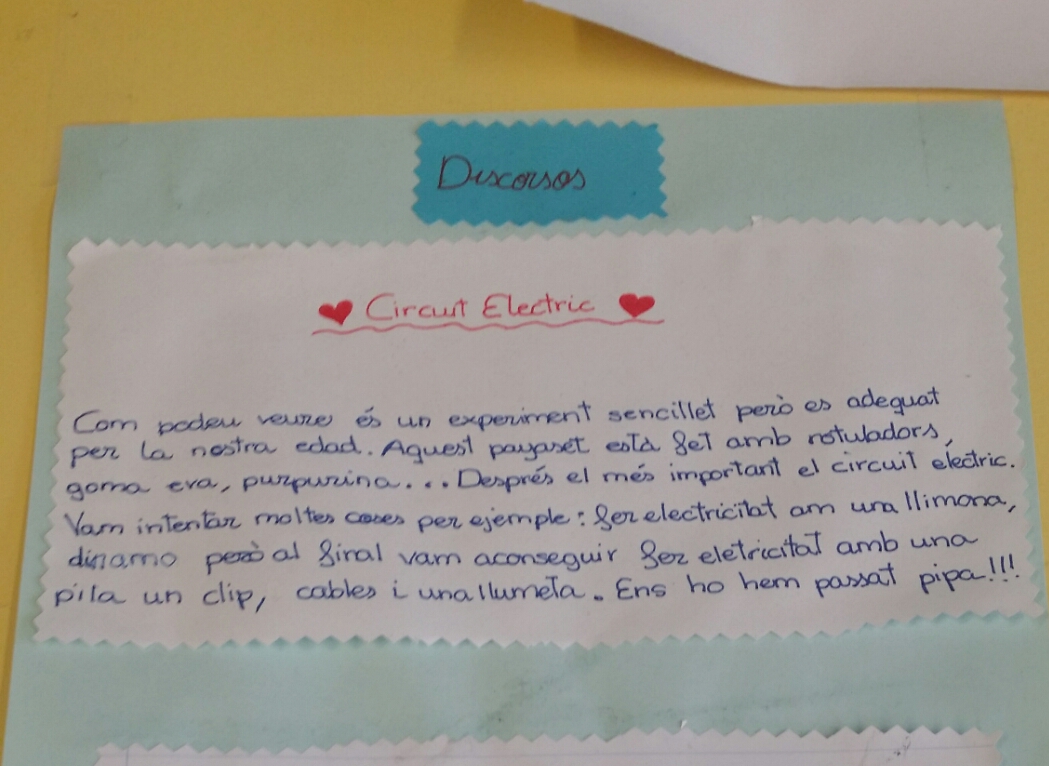 Discorsos
Circuit Electric
Com podeu veure és un experiment sencillet però es adequat
per la nostra edad. Aquest payaset està fet amb rotuladors,
goma eva, purpurina... Després el més important el circuit electric.
Vam intentar moltes coses per ejemple: fer electricitat am una llimona,
dinamo però al final vam aconseguir fer eletricitat amb una
pila un clip, cables i una llumeta. Ens ho hem passat pipa!!!